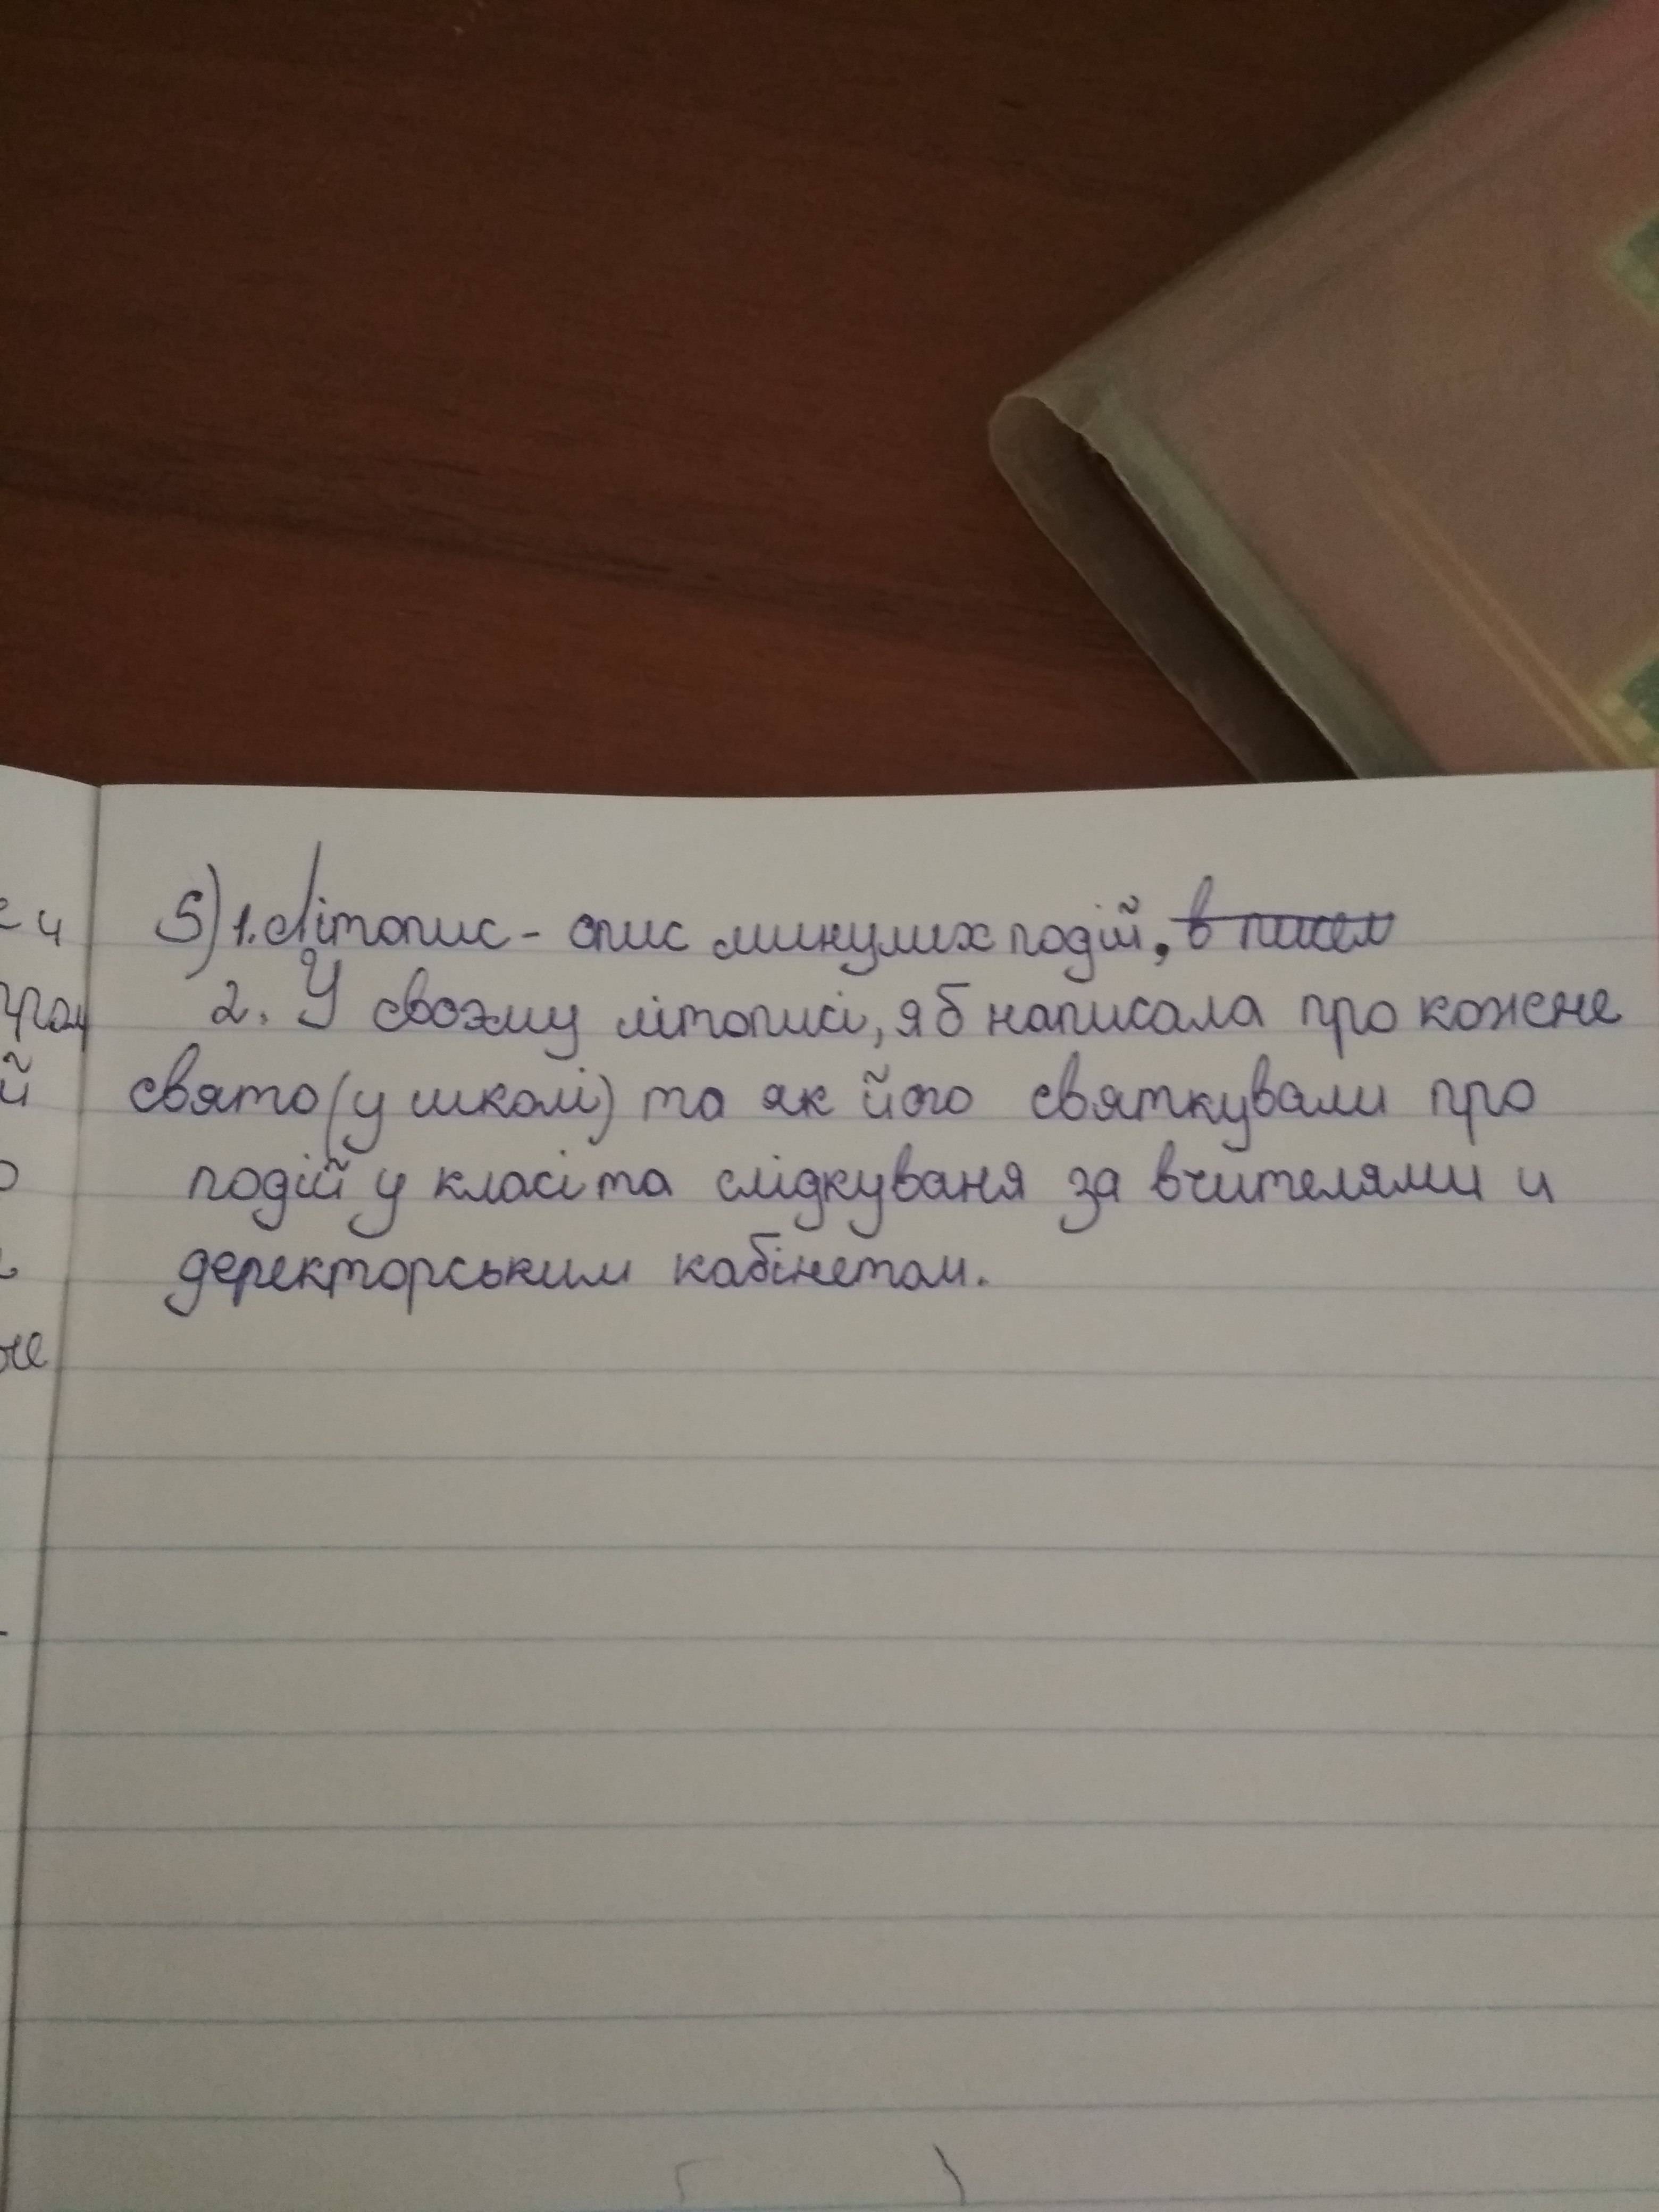 5) 1. Літопис - опис минулих подій, в писем
2. У своэму літописі, я б написала про кожне
свято (у школі) та як його святкували про
подій у класі та слідкуваня за вчителями и
деректорським кабінетом.